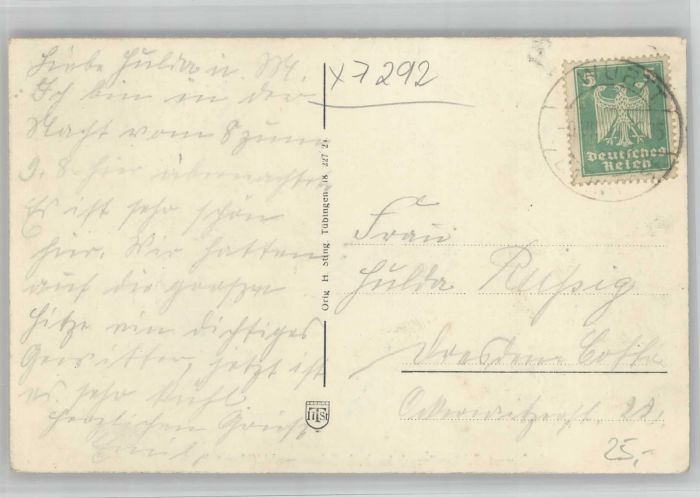 Liebe Hulda u. M.
Ich bin in der
Nacht vom 8 zum
9. 8. hier übernachtet
Es ist sehr schön
hier. Wir hatten
auf die grosse
Hitze ein dichtiges
Gewitter, jetzt ist
es sehr kühl
Herzlichen Gruß
Emil.
x7292
Orig. H. Sting, Tübingen 18 227 24
HSt
5
Deutsches
Reich
Frau
Hulda
Dresden-Cotta
Ockerwitzerst. 22.
25,-